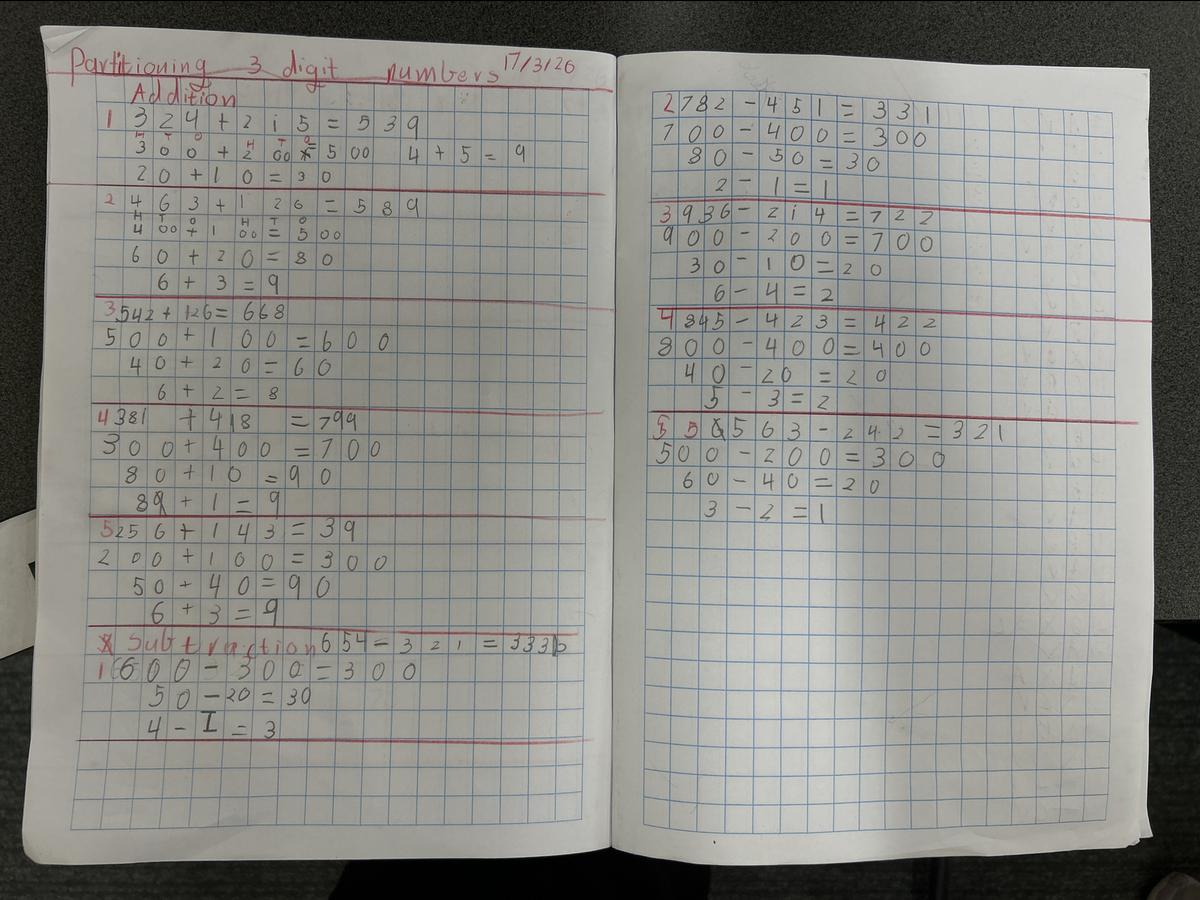 Partitioning 3 digit numbers 17/3/26
Addition
1 324 + 215 = 539
H T O H T O
300 + 200 = 500 4 + 5 = 9
20 + 10 = 30
2 463 + 126 = 589
H T O H T O
400 + 100 = 500
60 + 20 = 80
6 + 3 = 9
3 542 + 126 = 668
500 + 100 = 600
40 + 20 = 60
6 + 2 = 8
4 381 + 418 = 799
300 + 400 = 700
80 + 10 = 90
8 + 1 = 9
5 256 + 143 = 39
200 + 100 = 300
50 + 40 = 90
6 + 3 = 9
Subtraction 654 - 321 = 333
1 600 - 300 = 300
50 - 20 = 30
4 - I = 3
2 782 - 451 = 331
700 - 400 = 300
80 - 50 = 30
2 - 1 = 1
3 936 - 214 = 722
900 - 200 = 700
30 - 10 = 20
6 - 4 = 2
4 845 - 423 = 422
800 - 400 = 400
40 - 20 = 20
5 - 3 = 2
5 563 - 242 = 321
500 - 200 = 300
60 - 40 = 20
3 - 2 = 1